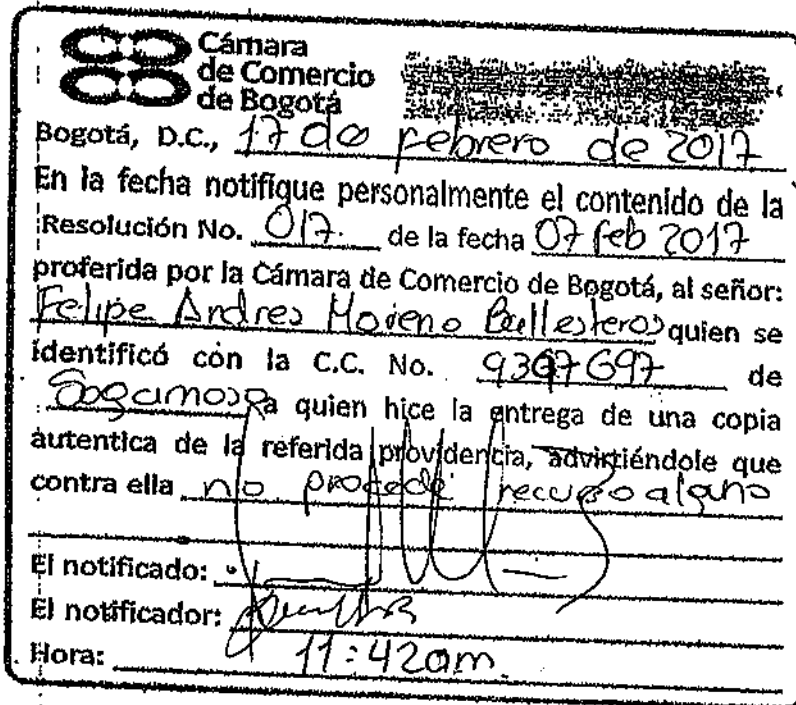 Cámara
de Comercio
de Bogotá
Bogotá, D.C., 17 de Febrero de 2017
En la fecha notifique personalmente el contenido de la
Resolución No. 017. de la fecha 07 feb 2017
proferida por la Cámara de Comercio de Bogotá, al señor:
Felipe Andres Moreno Ballesteros quien se
identificó con la C.C. No. 9397697 de
Sogamoso a quien hice la entrega de una copia
autentica de la referida providencia, advirtiéndole que
contra ella no procede recurso alguno
El notificado:
El notificador:
Hora: 11:42am.